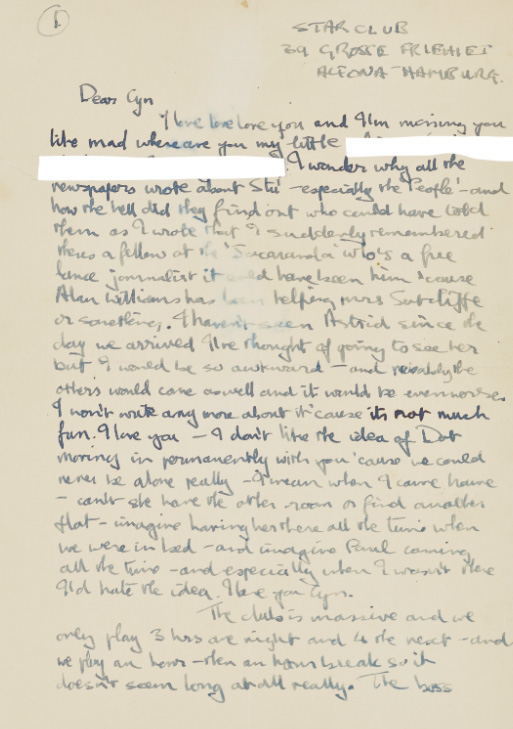 1
STAR CLUB
39 GROSSE FRIEHIET
ALTONA HAMBURG.
Dear Cyn
I love love love you and I'm missing you
like mad where are you my little
I wonder why all the
newspapers wrote about Stu - especially the 'People' - and
how the hell did they find out who could have told
them as I wrote that I suddenly remembered
theres a fellow at the 'Jacaranda' who's a free
lance journalist it could have been him 'cause
Alan Williams has been helping mrs Sutcliffe
or something. I haven't seen Astrid since the
day we arrived I've thought of going to see her
but I would be so awkward - and probably the
others would come as well and it would be even worse.
I won't write any more about it 'cause its not much
fun. I love you - I don't like the idea of Dot
moving in permanently with you 'cause we could
never be alone really - I mean when I come home
- can't she have the other room or find another
flat - imagine having her there all the time when
we were in bed - and imagine Paul coming
all the time - and especially when I wasn't there
I'd hate the idea. I love you Cyn.
The club is massive and we
only play 3 hrs one night and 4 the next - and
we play an hour - then an hour break so it
doesn't seem long at all really. The boss